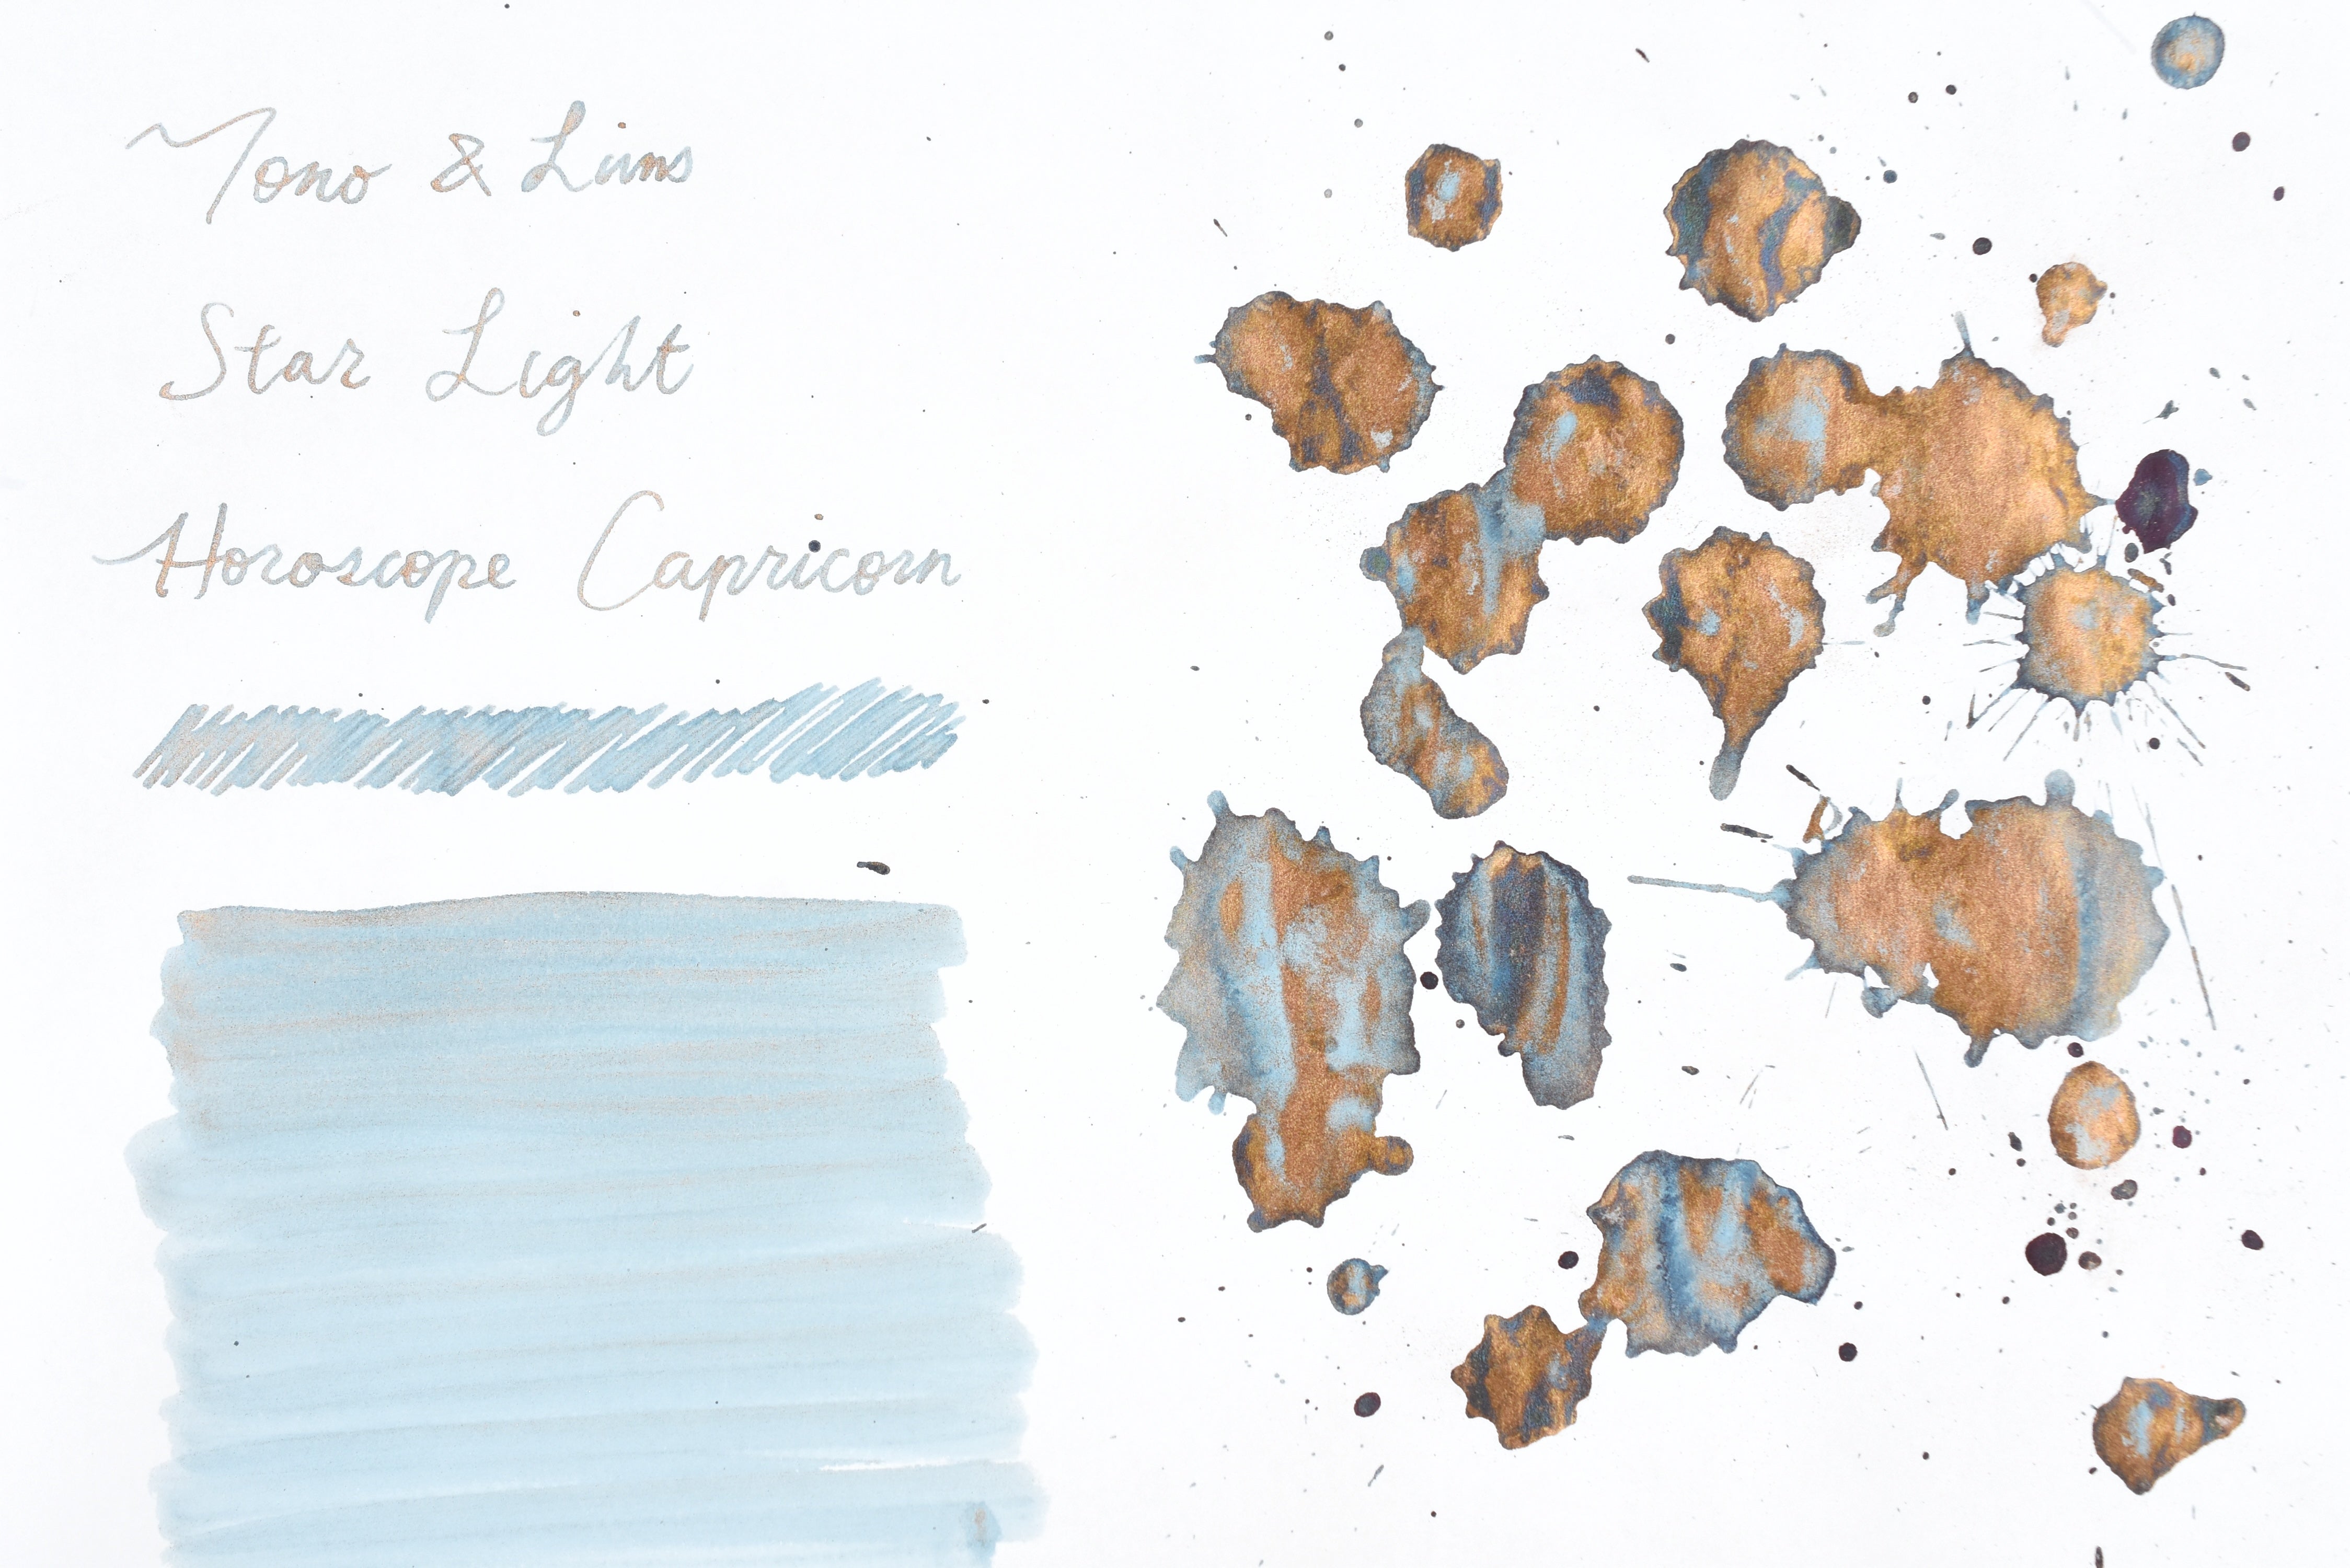 Mono & Lims
Star Light
Horoscope Capricorn